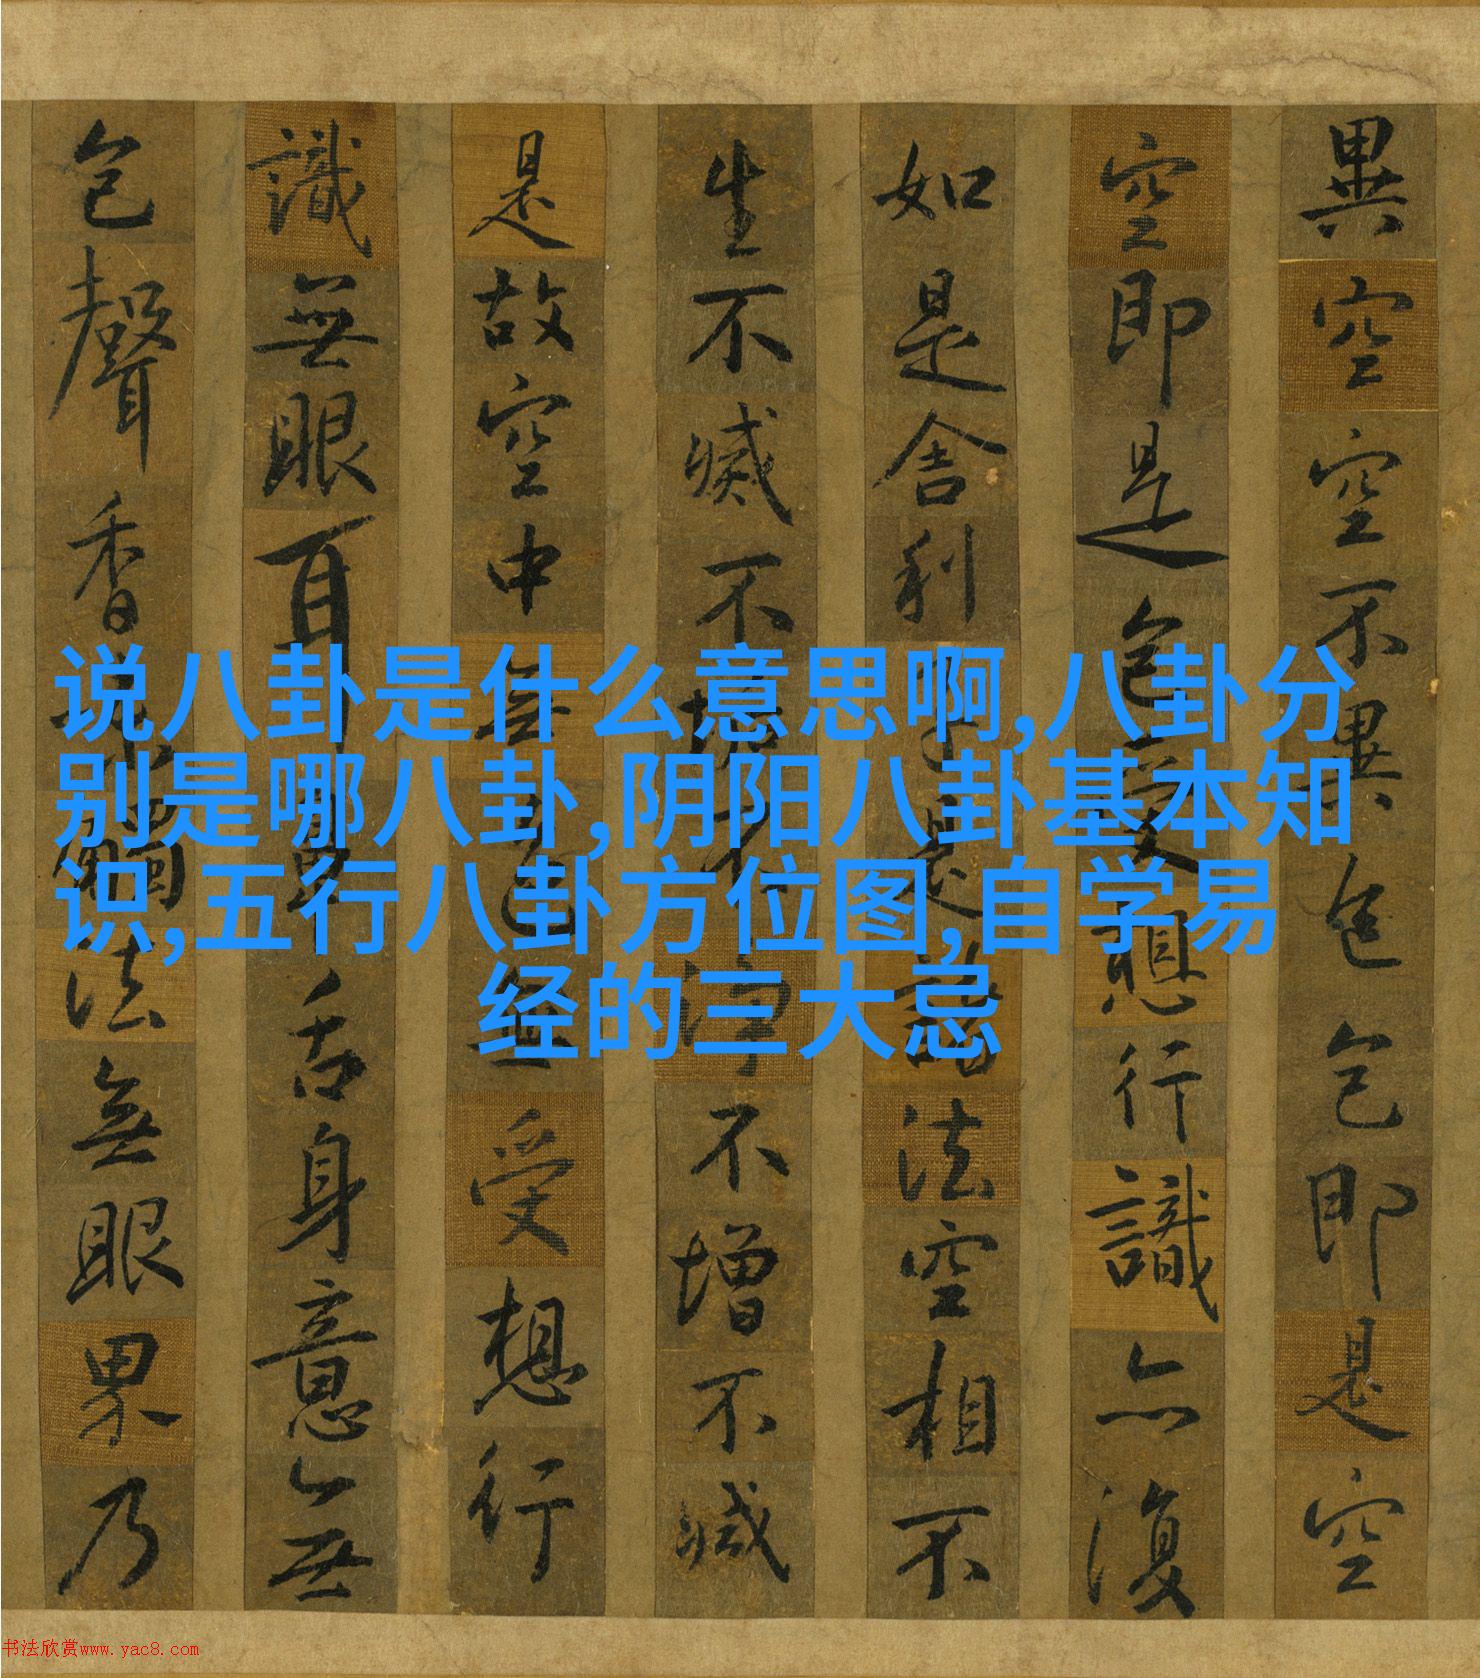 異空空不異色色即是空
空即是色受想行識亦復
如是舍利子是諸法空相不
生不滅不垢不淨不增不減
是故空中無色無受想行
識無眼耳鼻舌身意無
色聲香味觸法無眼界乃
说八卦是什么意思啊,八卦分
别是哪八卦,阴阳八卦基本知
识,五行八卦方位图,自学易
经的三大忌
书法欣赏www.yac8.com